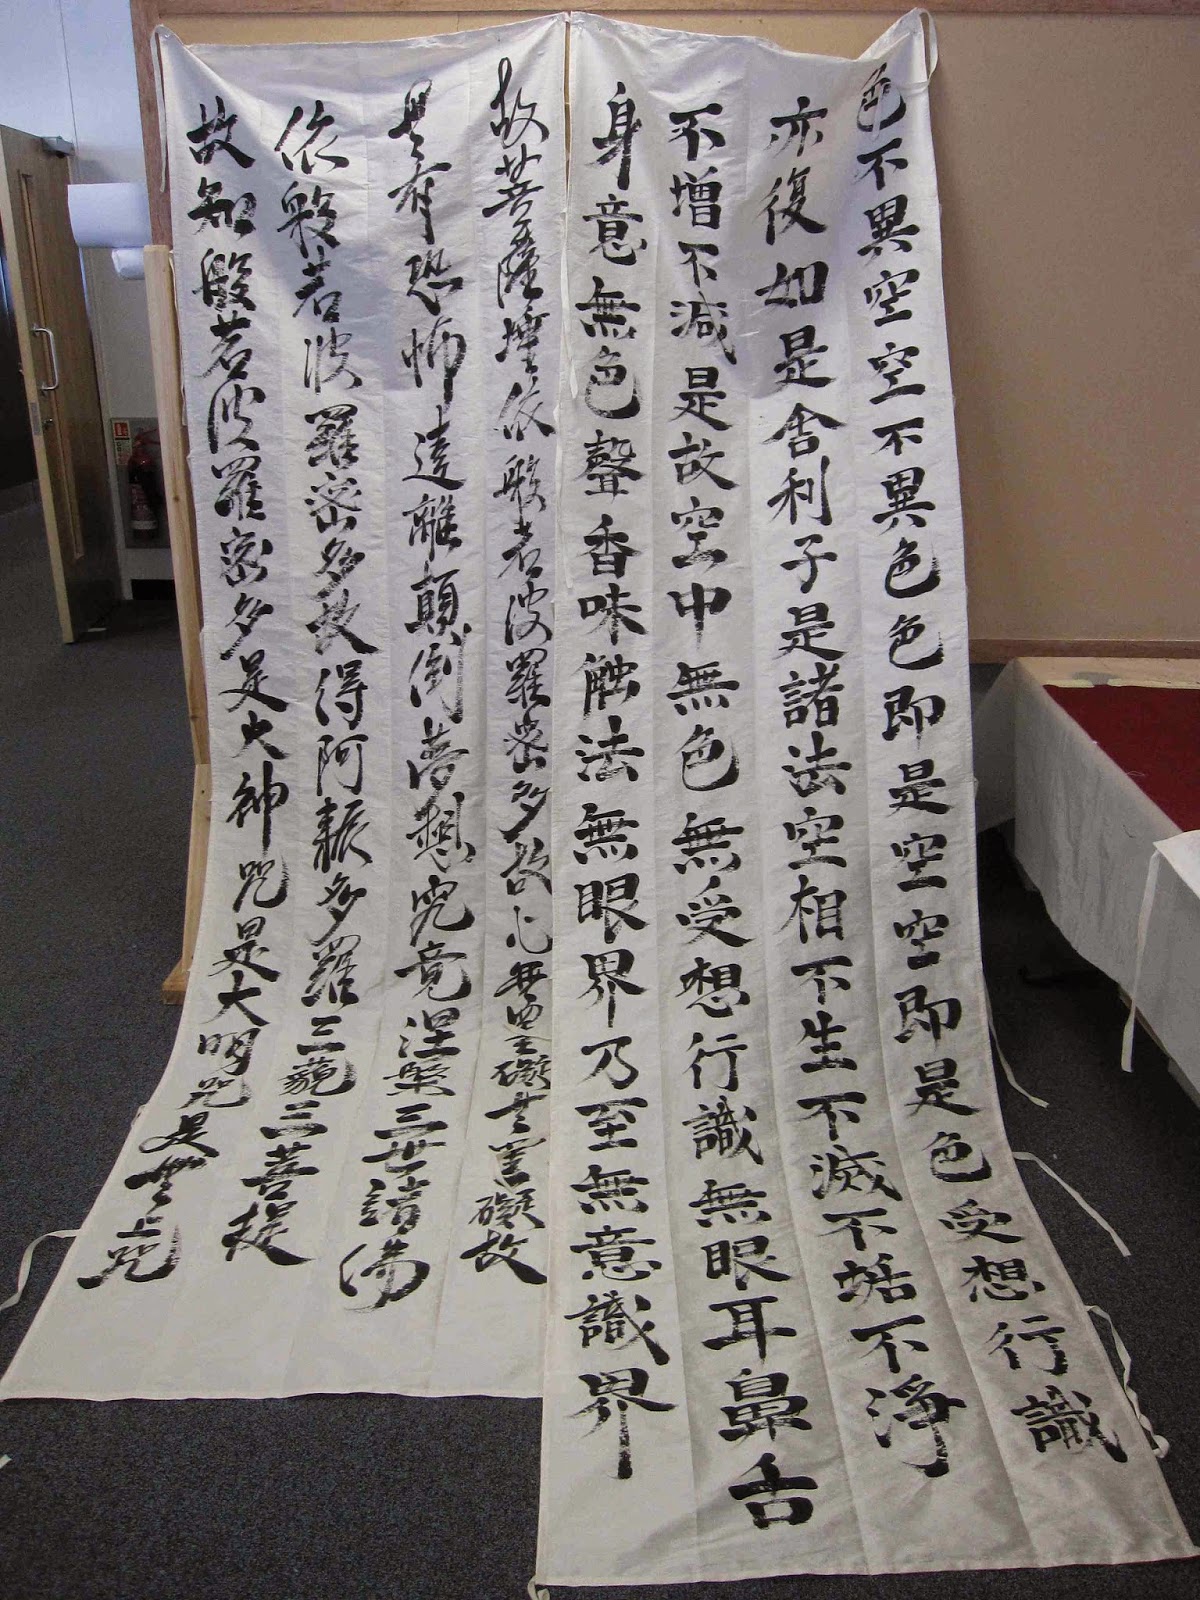 色不異空空不異色色即是空空即是色受想行識
亦復如是舍利子是諸法空相不生不滅不垢不淨
不增不減是故空中無色無受想行識無眼耳鼻舌
身意無色聲香味触法無眼界乃至無意識界
故菩薩埵依般若波羅密多故心無罣礙無罣礙故
無有恐怖遠離顛倒夢想究竟涅槃三世諸佛
依般若波羅密多故得阿耨多羅三藐三菩提
故知般若波羅密多是大神咒是大明咒是無上咒